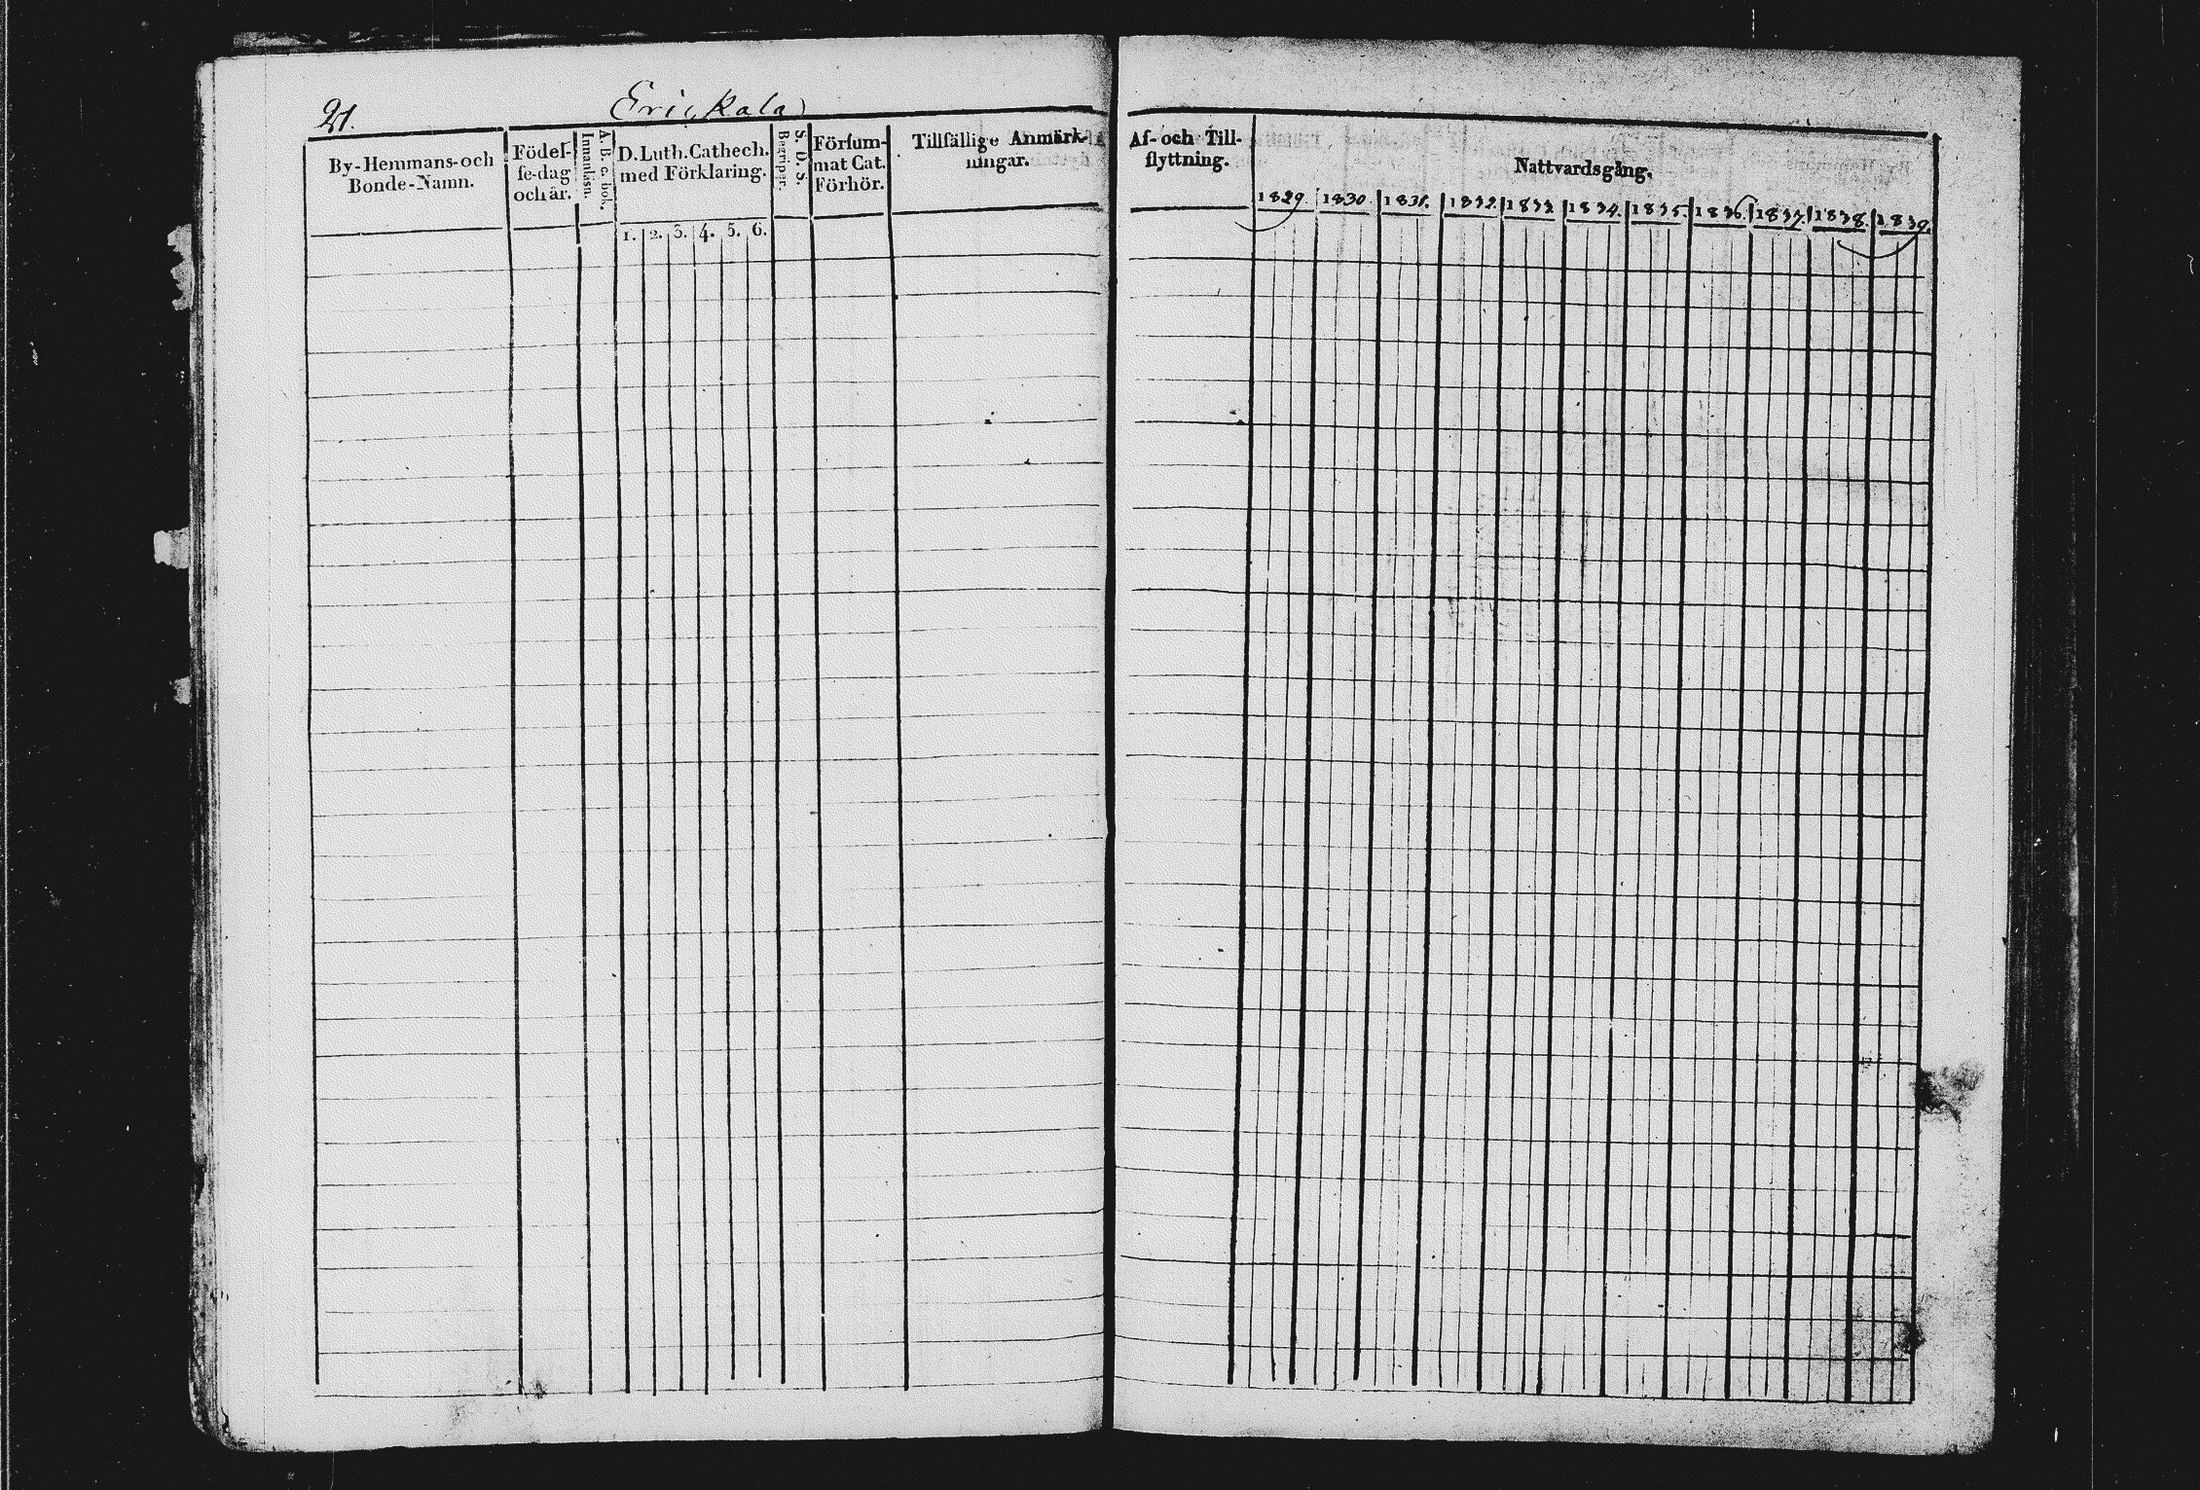 21.
Erickala
By-Hemmans-och
Bonde-Namn.
Födel-
se-dag
och år.
A. B. c. bok.
Innanläsn.
D. Luth. Cathech.
med Förklaring.
1. 2. 3. 4. 5. 6.
S. D. S.
Begriper.
Försum-
mat Cat.
Förhör.
Tillfällige Anmärk-
ningar.
Af- och Till-
flyttning.
Nattvardsgång.
1829. 1830. 1831. 1832. 1833 1834. 1835. 1836. 1837. 1838. 1839.